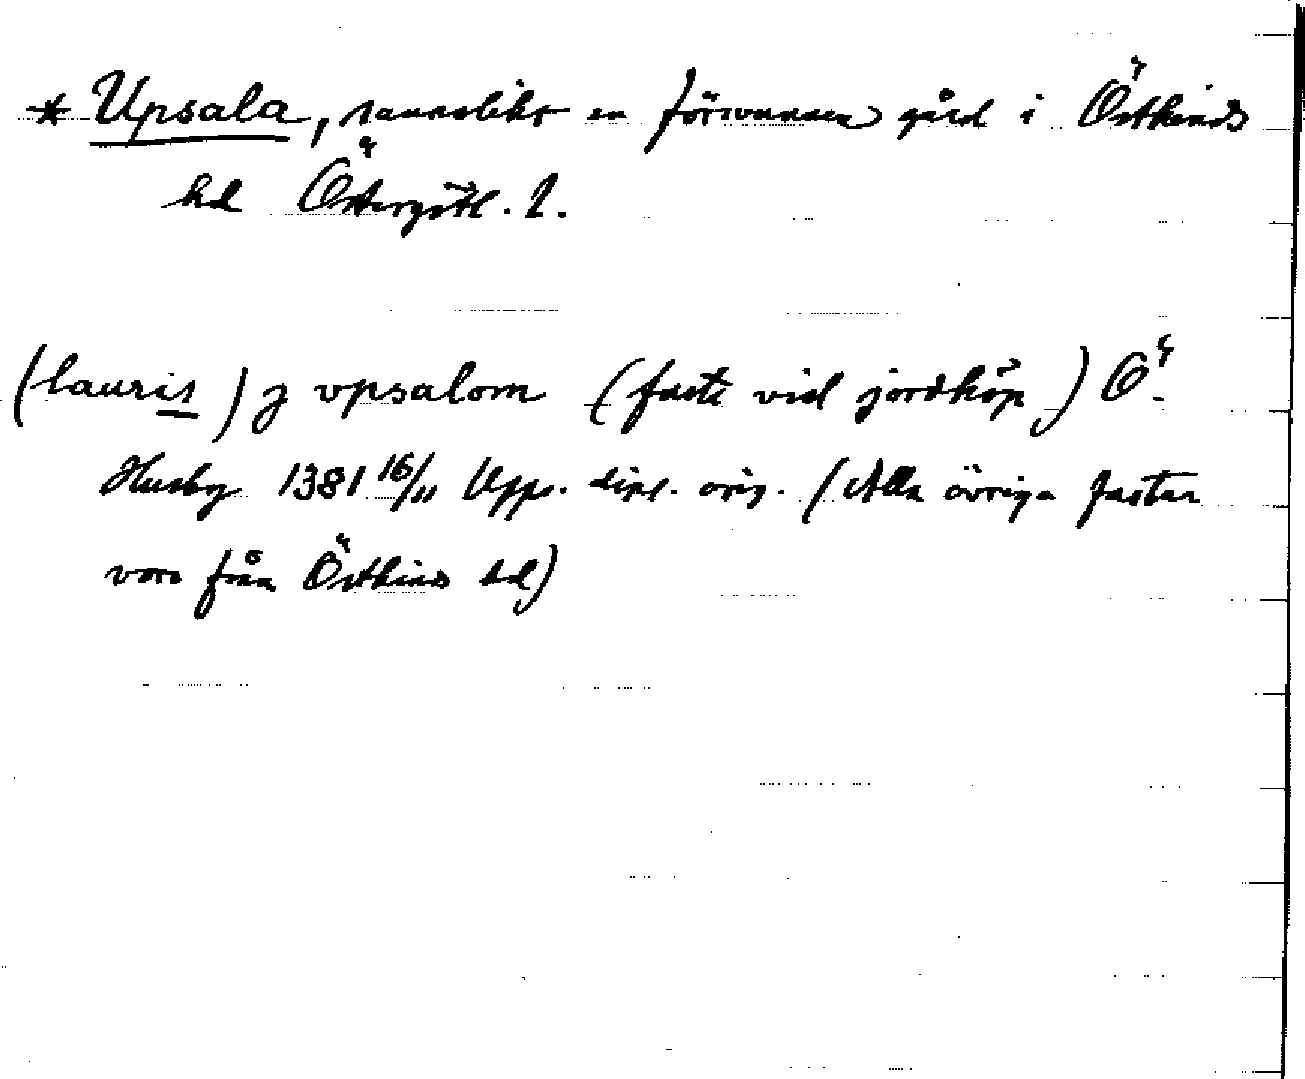 * Upsala, sannolikt en försvunnen gård i Östkinds
hd Östergötl. l.
(lauris) j vpsalom (faste vid jordköp) Ö-
Husby 1381 16/11 Upps. dipl. orig. (Alla övriga fastar
voro från Östkinds hd)